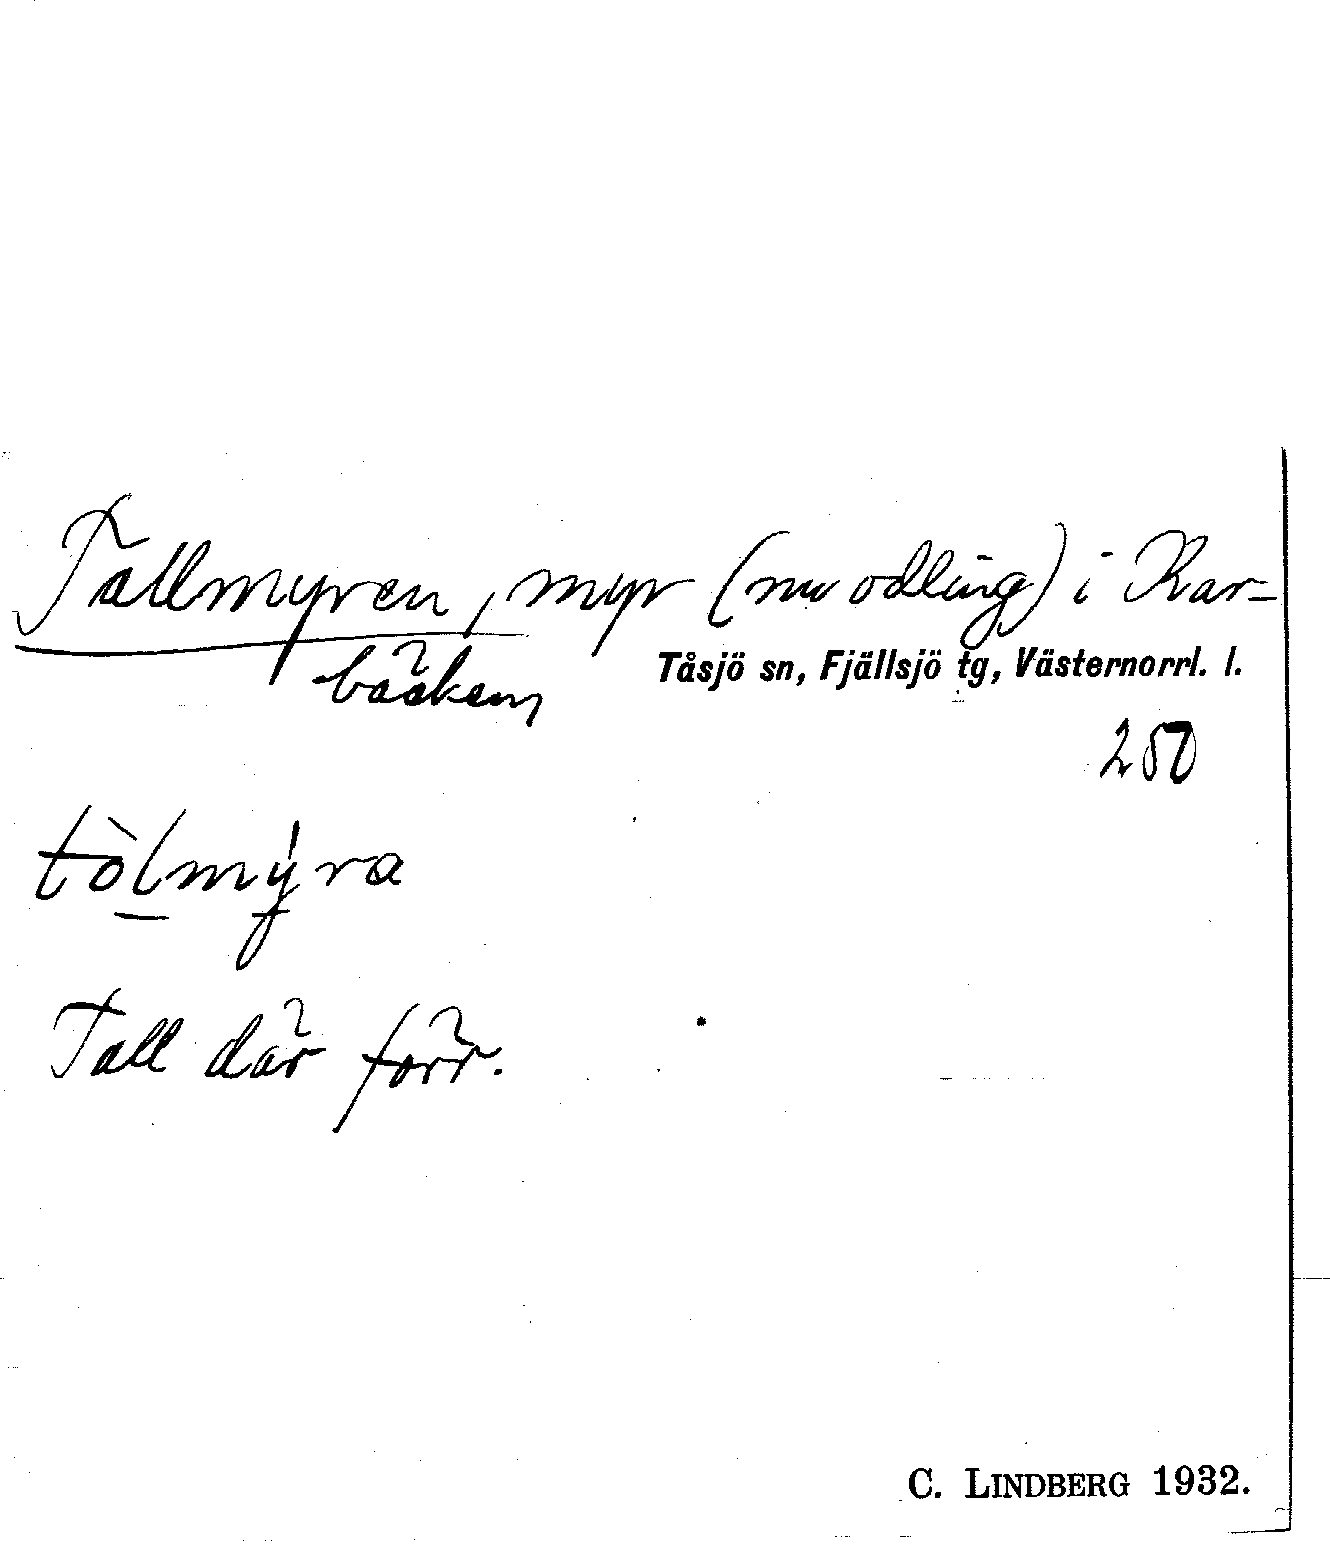 Tallmyren, myr (nu odling) i Kar-
bäcken,
Tåsjö sn, Fjällsjö tg, Västernorrl. l.
250
tòlmýra
Tall där förr.
C. LINDBERG 1932.